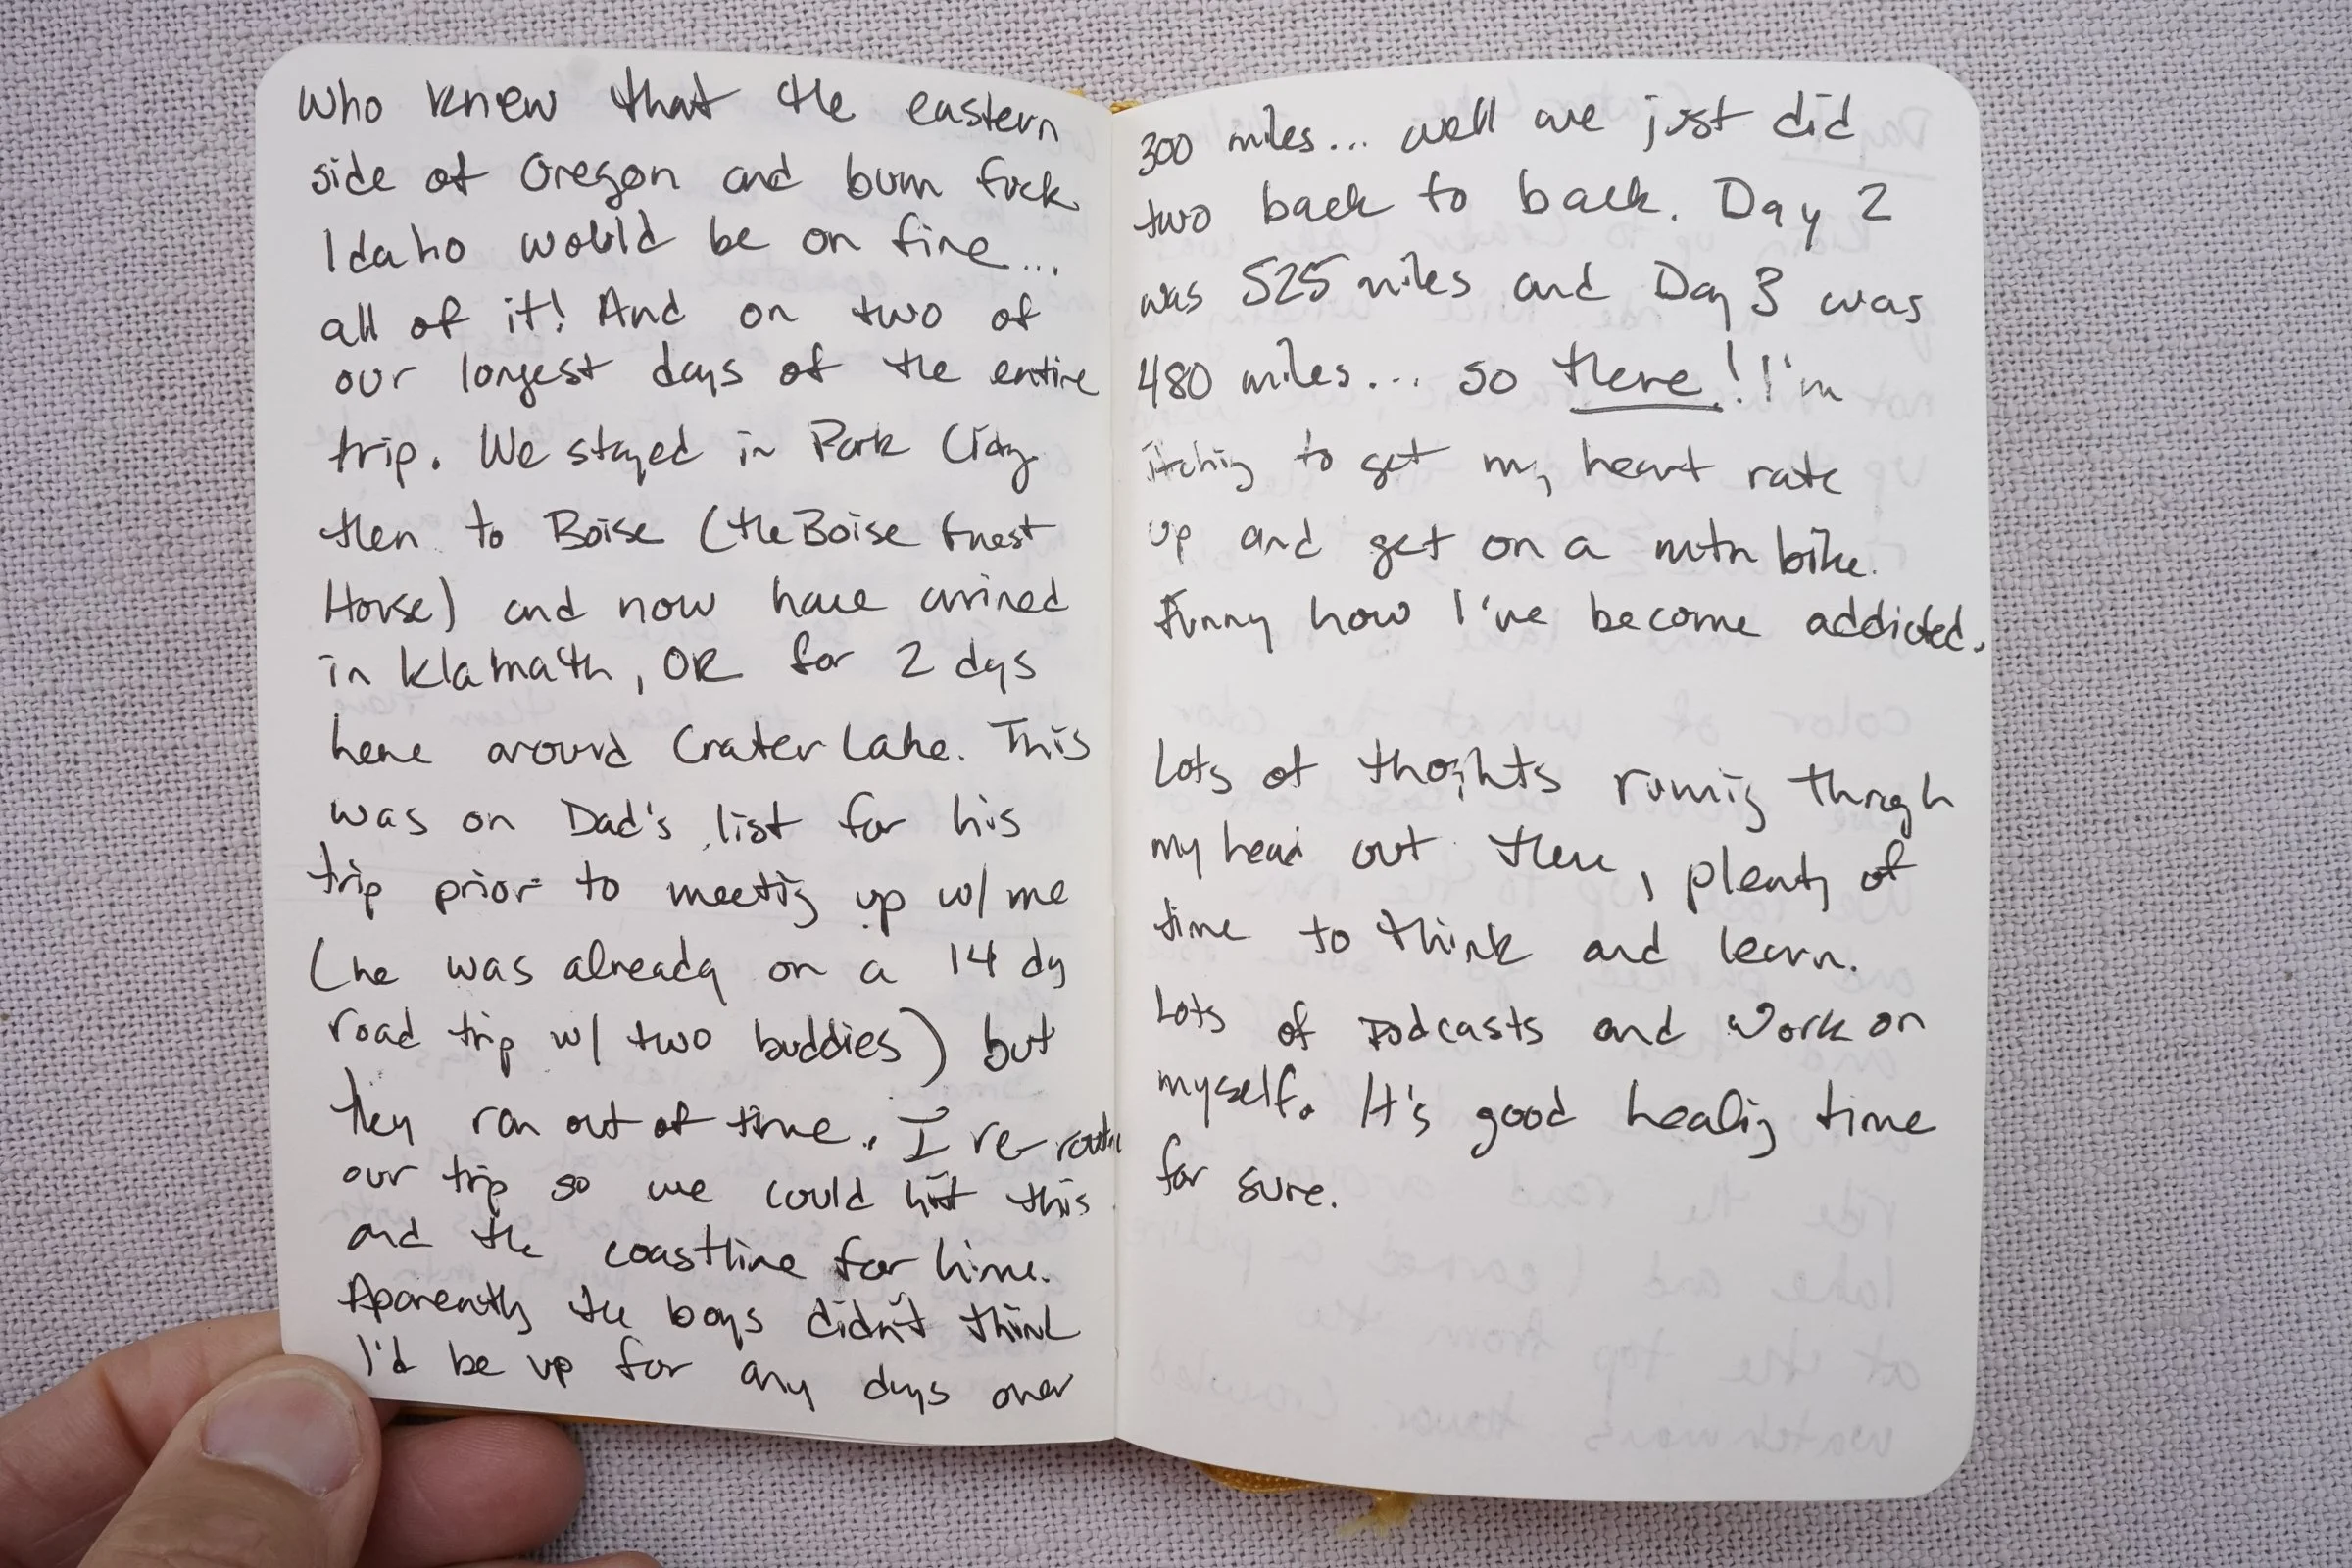 Who knew that the eastern
side of Oregon and bum fuck
Idaho would be on fire...
all of it! And on two of
our longest days of the entire
trip. We stayed in Park City
then to Boise (the Boise Guest
House) and now have arrived
in Klamath, OR for 2 dys
here around Crater Lake. This
was on Dad's list for his
trip prior to meeting up w/ me
(he was already on a 14 dy
road trip w/ two buddies) but
they ran out of time. I re-route
our trip so we could hit this
and the coastline for him.
Aparently the boys didn't think
I'd be up for any days over
300 miles... well we just did
two back to back. Day 2
was 525 miles and Day 3 was
480 miles... so there! I'm
itching to get my heart rate
up and get on a mtn bike.
Funny how I've become addicted.
Lots of thoughts running through
my head out there, plenty of
time to think and learn.
Lots of podcasts and work on
myself. It's good healing time
for sure.